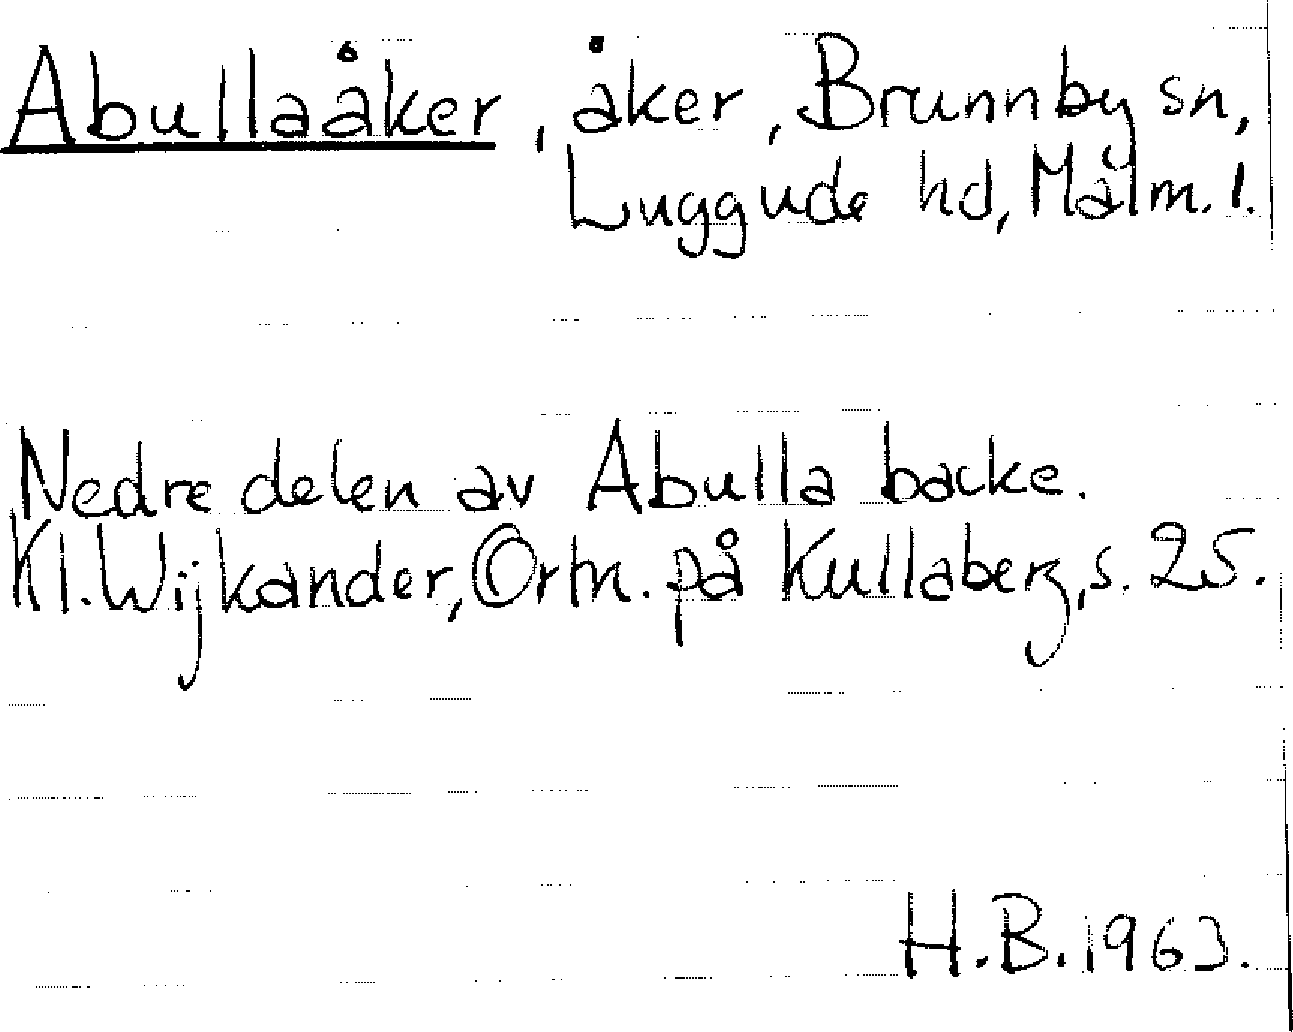 Abullaåker, åker, Brunnby sn,
Luggude hd, Malm. l.
Nedre delen av Abulla backe.
Kl. Wijkander, Ortn. på Kullaberg, s. 25.
H.B. 1963.